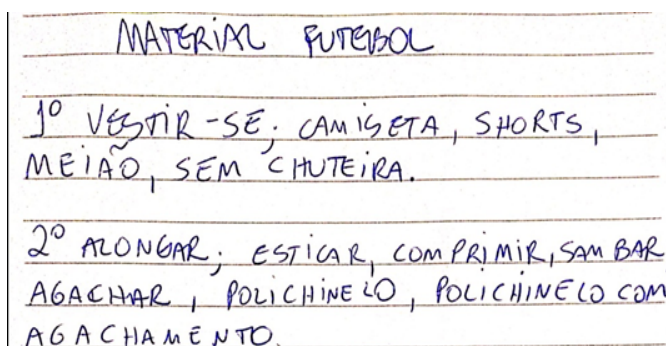 MATERIAL FUTEBOL
1º VESTIR-SE; CAMISETA, SHORTS,
MEIÃO, SEM CHUTEIRA.
2º ALONGAR; ESTICAR, COMPRIMIR, SAMBAR
AGACHAR, POLICHINELO, POLICHINELO COM
AGACHAMENTO.